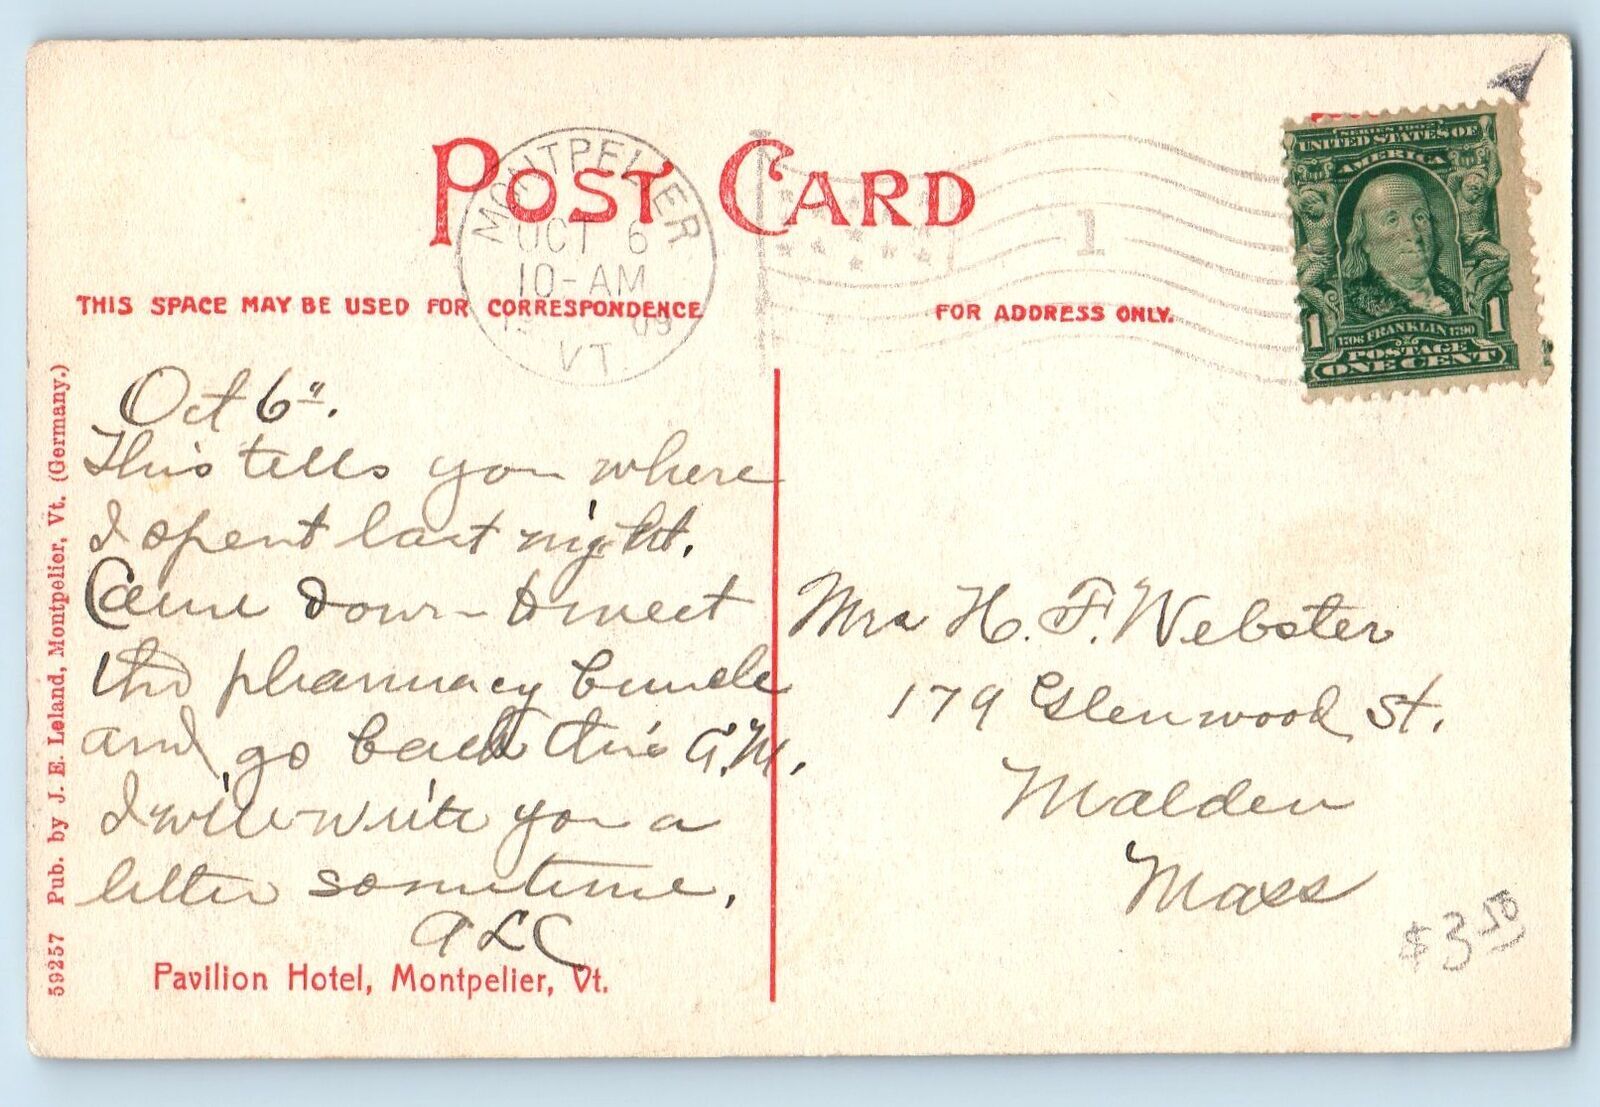 POST CARD
MONTPELIER
OCT 6
10-AM
09
VT.
1
SERIES 1902
UNITED STATES OF
AMERICA
1 1
1706 FRANKLIN 1790
POSTAGE
ONE CENT
THIS SPACE MAY BE USED FOR CORRESPONDENCE
FOR ADDRESS ONLY.
Oct 6".
This tells you where
I spent last night.
Came down to meet
the pharmacy
and go back this A.M.
I will write you a
letter sometime.
ALC
Mrs H. F. Webster
179 Glenwood St.
Malden
Mass
$3.50
Pavilion Hotel, Montpelier, Vt.
59257 Pub. by J. E. Leland, Montpelier, Vt. (Germany.)